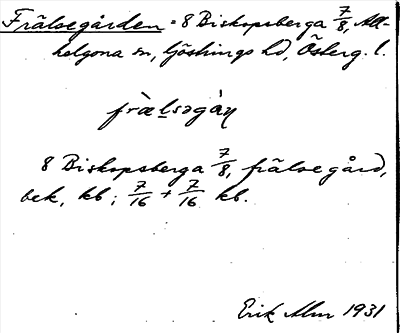 Frälsegården = 8 Biskopsberga 7/8, All-
helgona sn, Göstrings hd, Österg. l.
fræ̀lsəgàɳ
8 Biskopsberga 7/8, frälsegård,
bek, kb; 7/16 + 7/16 kb.
Erik Alm 1931